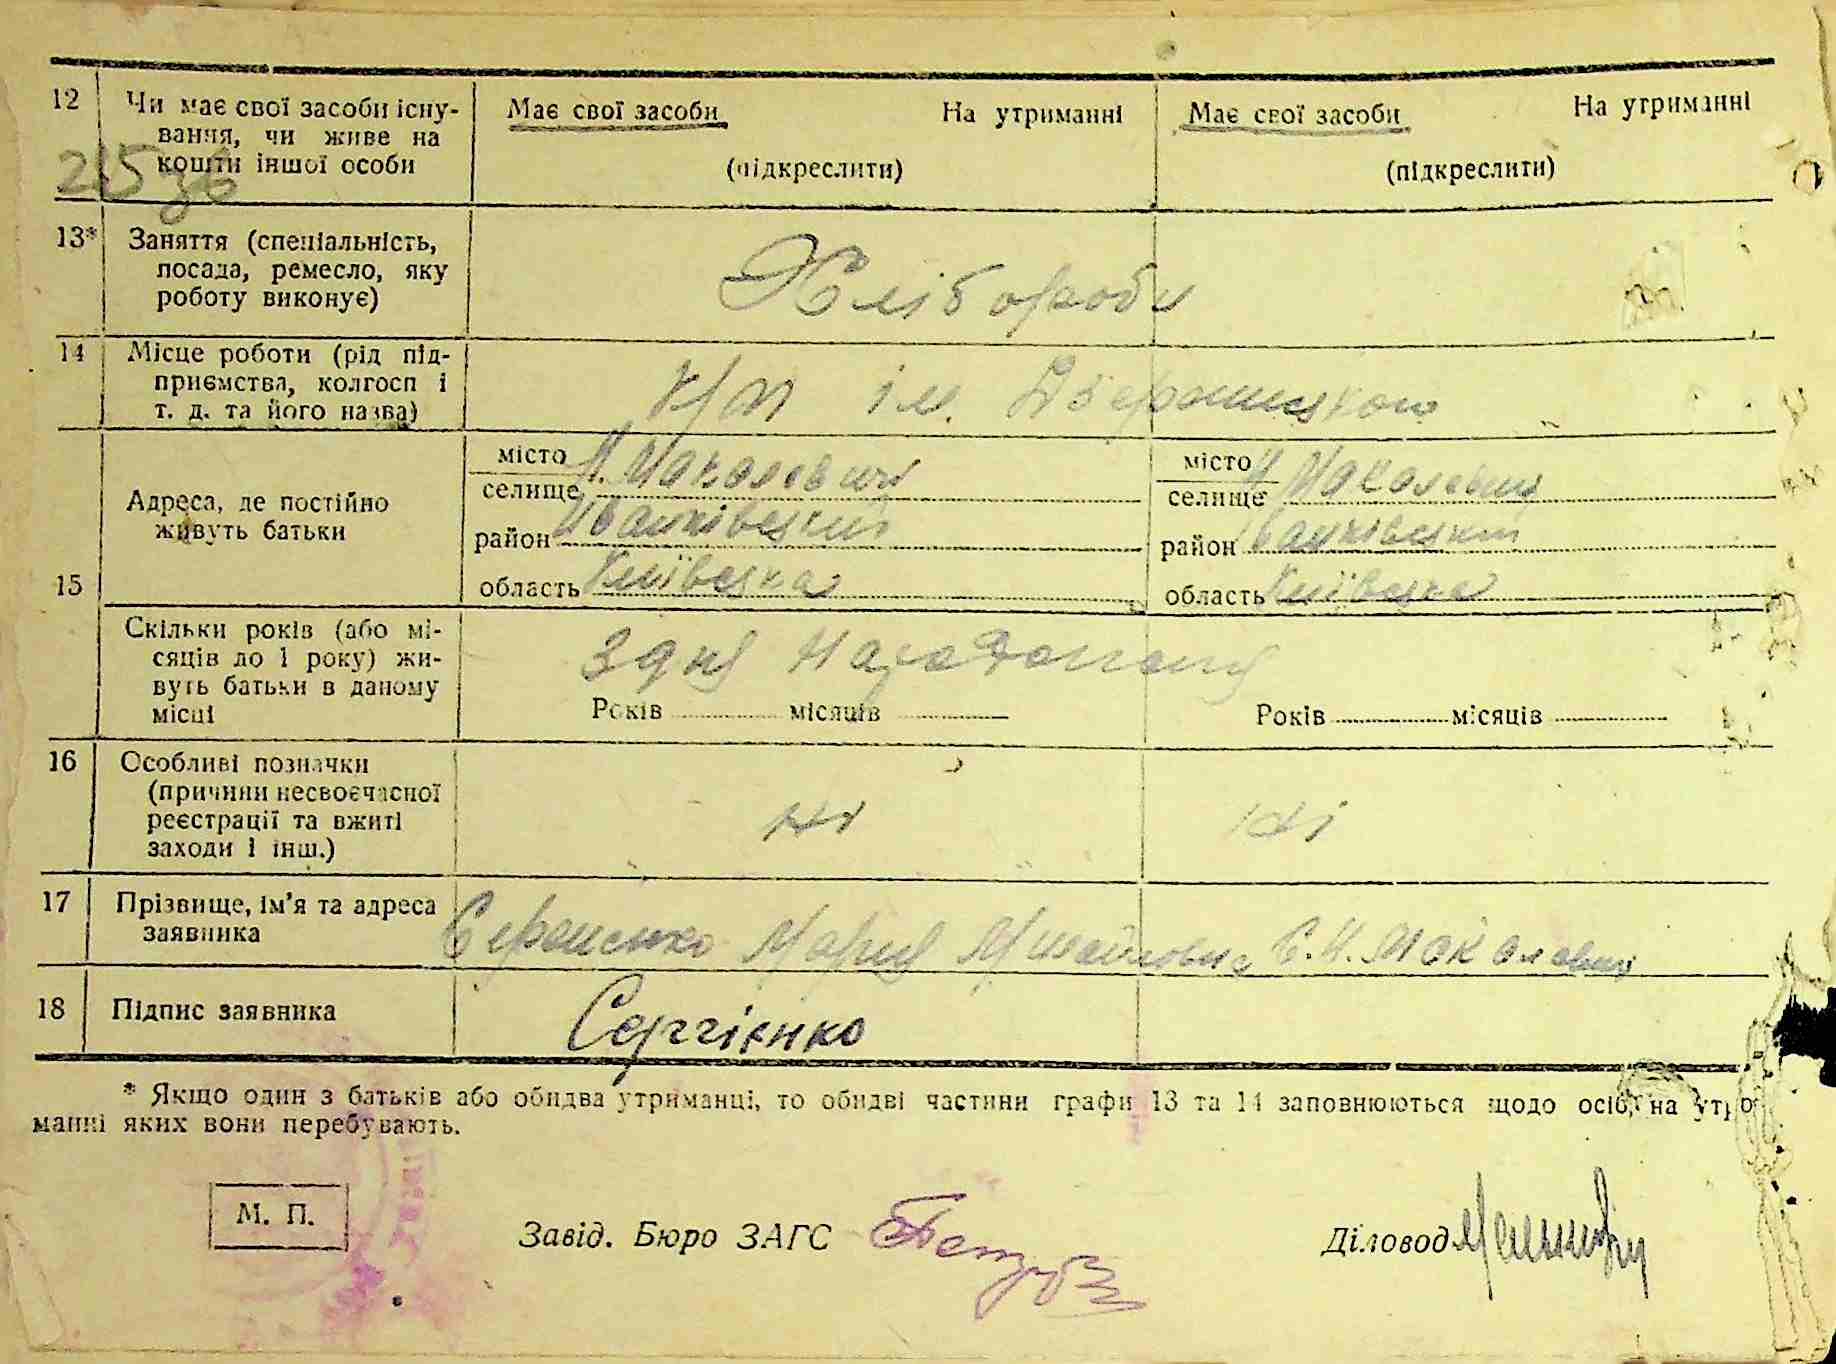 12 Чи має свої засоби існу- Має свої засоби На утриманні Має свої засоби На утриманні
вання, чи живе на
кошти іншої особи (підкреслити) (підкреслити)
215 зв
13* Заняття (спеціальність,
посада, ремесло, яку Хлібороби
роботу виконує)
14 Місце роботи (рід під-
приємства, колгосп і к/г ім.
т. д. та його назва)
15 Адреса, де постійно
живуть батьки
місто Н. Макалевичі місто Н Макалевичі
селище селище
район Іванківський район Іванківський
область Київська область Київська
Скільки років (або мі-
сяців до 1 року) жи- З дня народження
вуть батьки в даному
місці Років місяців Років місяців
16 Особливі позначки
(причини несвоєчасної
реєстрації та вжиті ні ні
заходи і інш.)
17 Прізвище, ім'я та адреса
заявника Сергієнко Марія Михайловна с. Н. Макалевичі
18 Підпис заявника Сергієнко
* Якщо один з батьків або обидва утриманці, то обидві частини графи 13 та 14 заповнюються щодо осіб, на утри-
манні яких вони перебувають.
М. П. Завід. Бюро ЗАГС Діловод